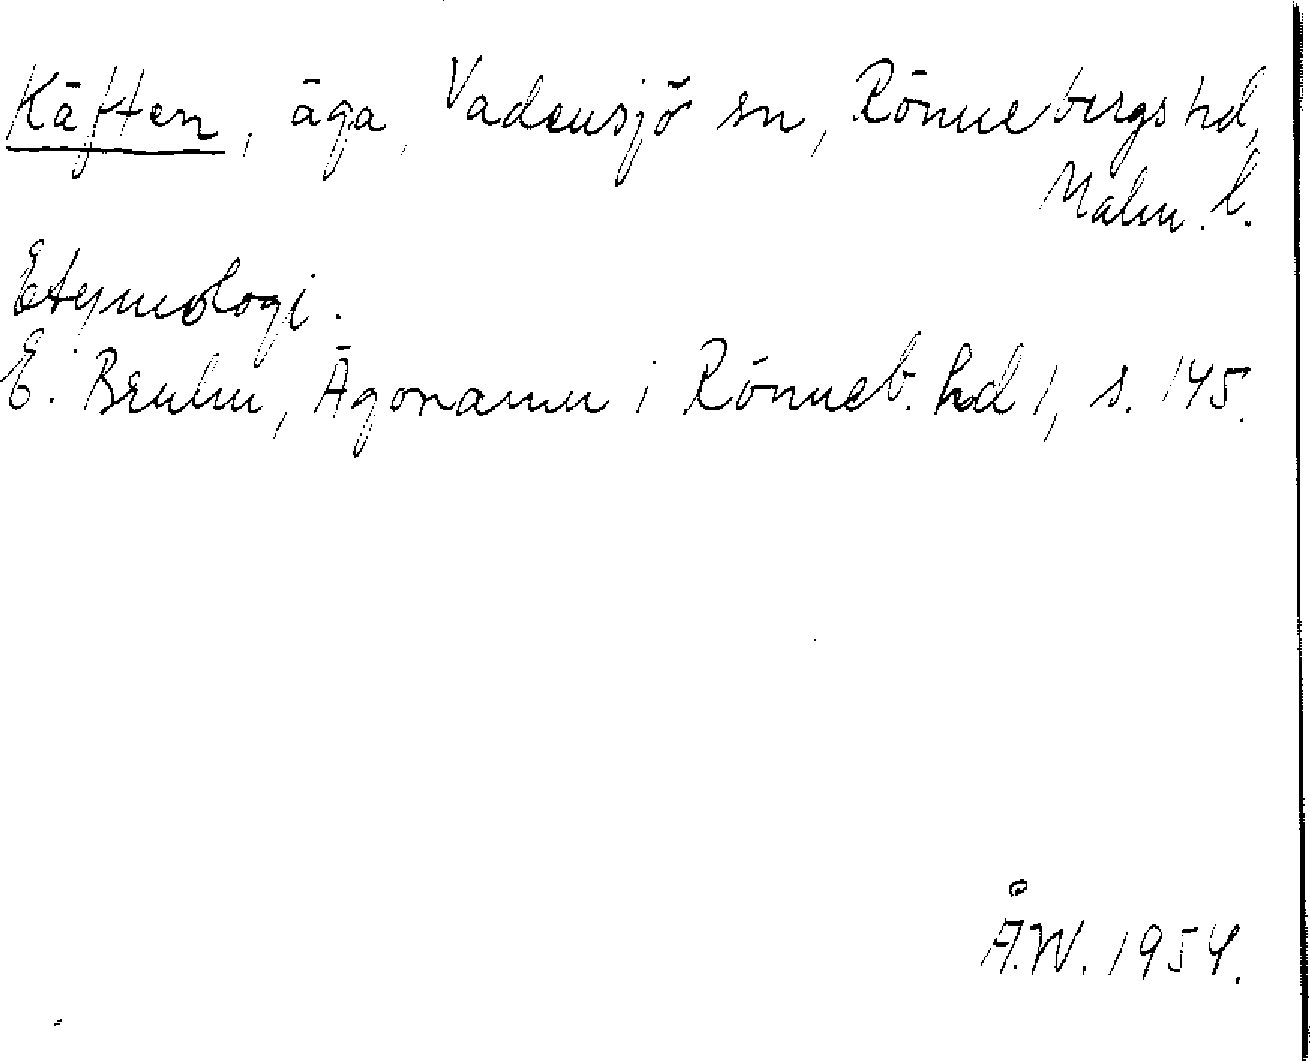 Käften, äga, Vadensjö sn, Rönnebergs hd,
Malm. l.
Etymologi.
E. Bruhn, Ägonamn i Rönneb. hd 1, s. 145.
Å.W. 1954.